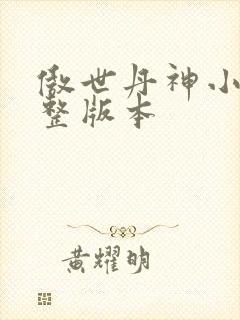 傲世丹神小
整版本
黄耀明